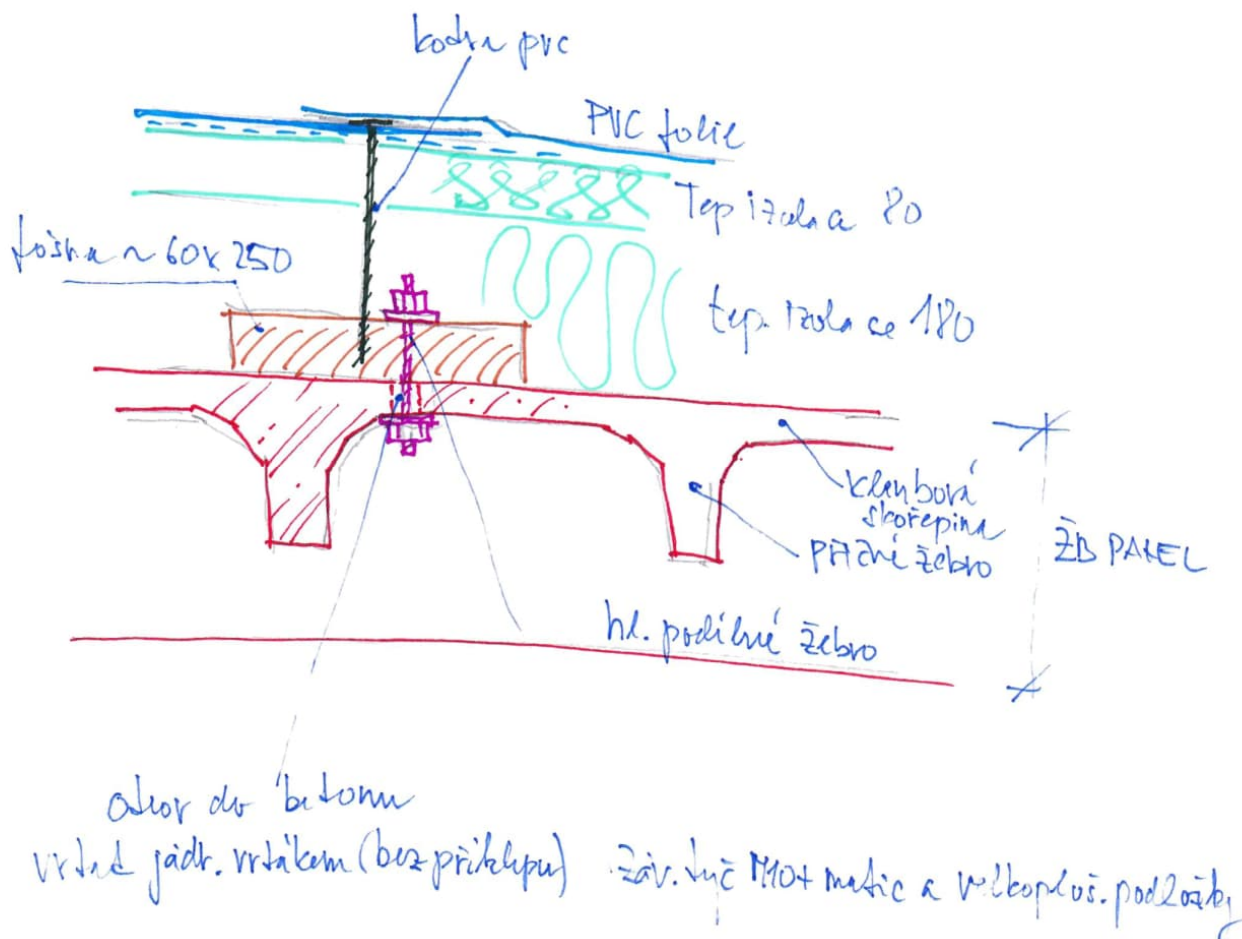 kotva pvc
PVC folie
Tep izolace 80
fošna ~ 60x250
tep. izolace 180
klenbová
skořepina
příčné žebro
ŽB PANEL
hl. podélné žebro
otvor do betonu
vrtat jádr. vrtákem (bez příklepu)
záv. tyč M10+ matic a velkoploš. podložky